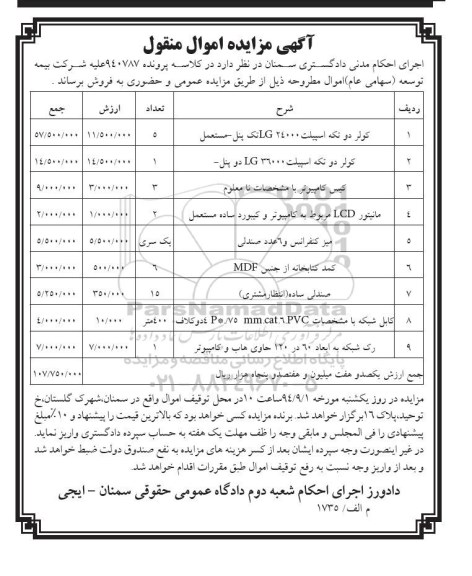 آگهی مزایده اموال منقول
اجرای احکام مدنی دادگستری سمنان در نظر دارد در کلاسه پرونده ۹۴۰۷۸۷علیه شرکت بیمه
توسعه (سهامی عام)اموال مطروحه ذیل از طریق مزایده عمومی و حضوری به فروش برساند .
ردیف شرح تعداد ارزش جمع
۱ کولر دو تکه اسپیلت۲۴۰۰۰ LGتک پنل-مستعمل ۵ ۱۱/۵۰۰/۰۰۰ ۵۷/۵۰۰/۰۰۰
۲ کولر دو تکه اسپیلت۳۶۰۰۰ LG دو پنل- ۱ ۱۴/۵۰۰/۰۰۰ ۱۴/۵۰۰/۰۰۰
۳ کیس کامپیوتر با مشخصات نا معلوم ۳ ۳/۰۰۰/۰۰۰ ۹/۰۰۰/۰۰۰
۴ مانیتور LCD مربوط به کامپیوتر و کیبورد ساده مستعمل ۲ ۱/۰۰۰/۰۰۰ ۲/۰۰۰/۰۰۰
۵ میز کنفرانس و۶عدد صندلی یک سری ۵/۵۰۰/۰۰۰ ۵/۵۰۰/۰۰۰
۶ کمد کتابخانه از جنس MDF ۶ ۵۰۰/۰۰۰ ۳/۰۰۰/۰۰۰
۷ صندلی ساده(انتظارمشتری) ۱۵ ۳۵۰/۰۰۰ ۵/۲۵۰/۰۰۰
۸ کابل شبکه با مشخصات ۴ P۰/۷۵ mm cat ۶ PVCدوکلاف ۴۰۰متر ۱۰/۰۰۰ ۴/۰۰۰/۰۰۰
۹ رک شبکه به ابعاد ۶۰ در ۱۲۰ حاوی هاب و کامپیوتر ۱ ۷/۰۰۰/۰۰۰ ۷/۰۰۰/۰۰۰
جمع ارزش یکصدو هفت میلیون و هفتصدو پنجاه هزار ریال ۱۰۷/۷۵۰/۰۰۰
ParsNamadData
پایگاه اطلاع رسانی مناقصه و مزایده
۰۲۱-۸۸۳۴۹۶۷۰-۵
مزایده در روز یکشنبه مورخه ۹۴/۹/۱ساعت ۱۰در محل توقیف اموال واقع در سمنان،شهرک گلستان،خ
توحید،پلاک ۱۶برگزار خواهد شد. برنده مزایده کسی خواهد بود که بالاترین قیمت را پیشنهاد و ۱۰٪مبلغ
پیشنهادی را فی المجلس و مابقی وجه را ظف مهلت یک هفته به حساب سپرده دادگستری واریز نماید.
در غیر اینصورت وجه سپرده ایشان بعد از کسر هزینه های مزایده به نفع صندوق دولت ضبط خواهد شد
و بعد از واریز وجه نسبت به رفع توقیف اموال طبق مقررات اقدام خواهد شد.
دادورز اجرای احکام شعبه دوم دادگاه عمومی حقوقی سمنان - ایجی
م الف/ ۱۷۳۵